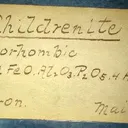 Childrenite
orhombic
FeO.Al₂O₃.P₂O₅.4
ron.